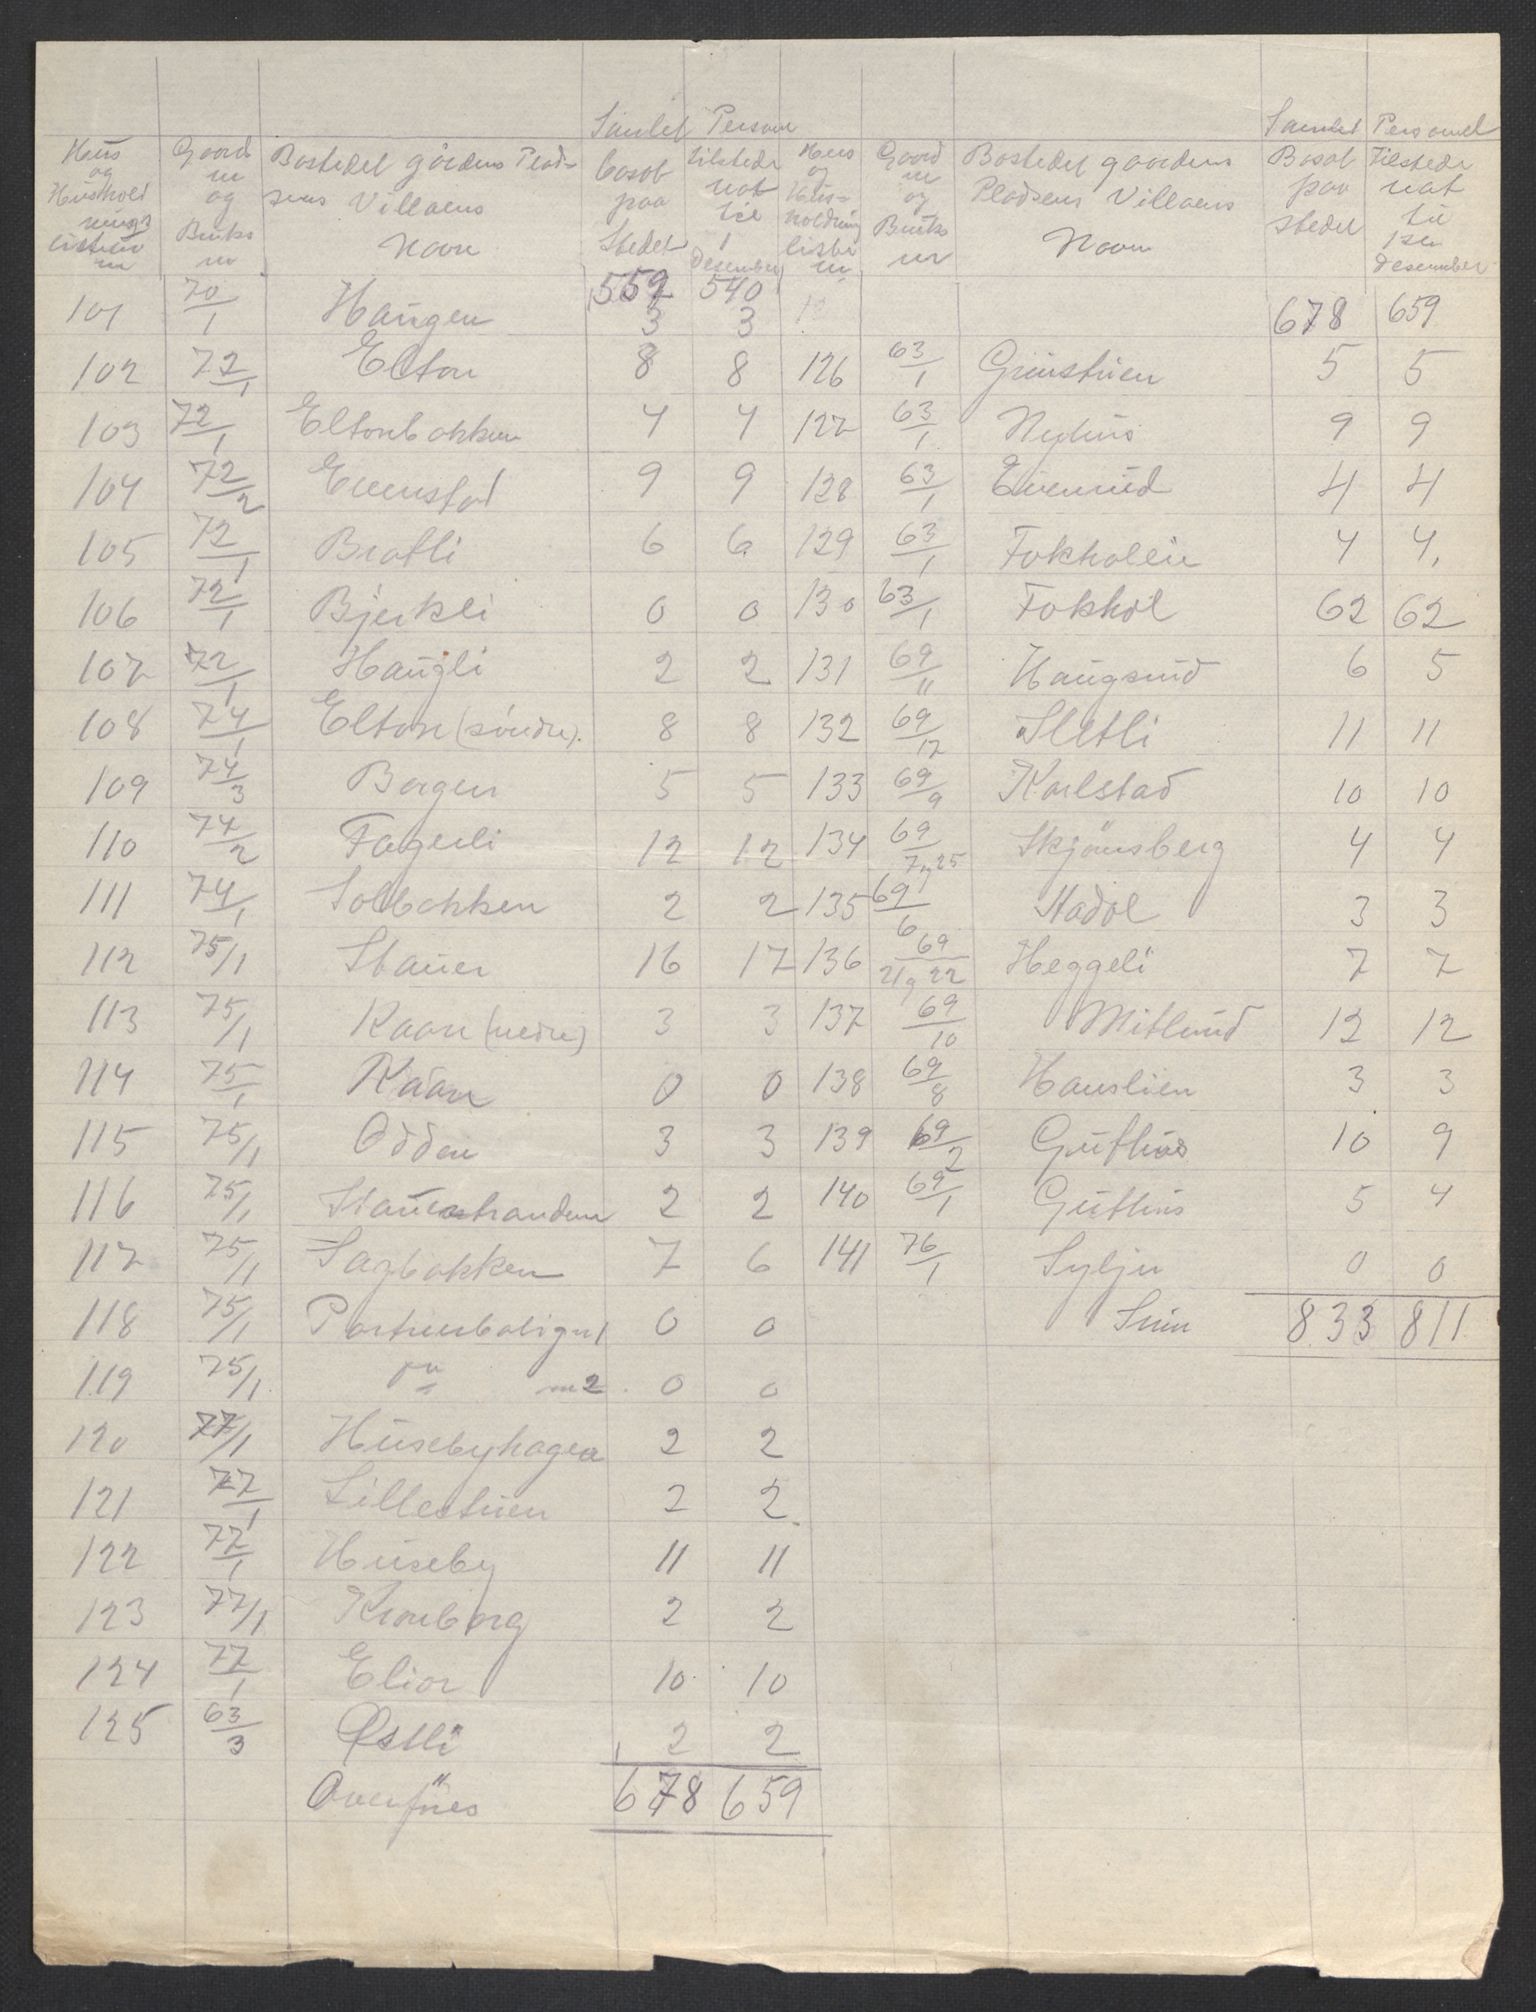 Samlet Person
Hus og Husholdnings listens nr | Gaard nr og Bruks nr | Bostedet gårdens Pladsens Villaens Navn | bosat paa Stedet | tilstede nat til 1 Desember
559 540
101 70/1 Haugen 3 3
102 72/1 Elton 8 8
103 72/1 Eltonbakken 4 4
104 72/2 Evenstad 9 9
105 72/1 Bratli 6 6
106 72/1 Bjerkli 0 0
107 72/1 Haugli 2 2
108 74/1 Elton (söndre). 8 8
109 74/3 Bergen 5 5
110 74/2 Fagerli 12 12
111 74/1 Solbakken 2 2
112 75/1 Stauer 16 17
113 75/1 Raan (nedre) 3 3
114 75/1 Raan 0 0
115 75/1 Odden 3 3
116 75/1 Stauerstranden 2 2
117 75/1 Sagbakken 7 6
118 75/1 0 0
119 75/1 nr 2. 0 0
120 77/1 Husebyhagen 2 2
121 77/1 Lillestuen 2 2
122 77/1 Huseby 11 11
123 77/1 Kronborg 2 2
124 77/1 10 10
125 63/3 Østli 2 2
Overföres 678 659
Samlet Personel
Hus og Husholdning listens nr | Gaard nr og Bruks nr | Bostedet gaardens Pladsens Villaens Navn | Bosat paa stedet | Tilstede nat til 1ste desember
678 659
126 63/1 Grinstuen 5 5
127 63/1 Nyhus 9 9
128 63/1 Evenrud 4 4
129 63/1 Fokholeie 4 4.
130 63/1 Fokhol 62 62
131 69/11 Haugsrud 6 5
132 69/12 Sletli 11 11
133 69/9 Karlstad 10 10
134 69/7 og 25 Skjönsberg 4 4
135 69/6 Stadol 3 3
136 69/21 og 22 Heggeli 7 7
137 69/10 Mitlund 12 12
138 69/8 Hauslien 3 3
139 69/2 Guthus 10 9
140 69/1 Guthus 5 4
141 76/1 Sylju 0 0
Sum 833 811